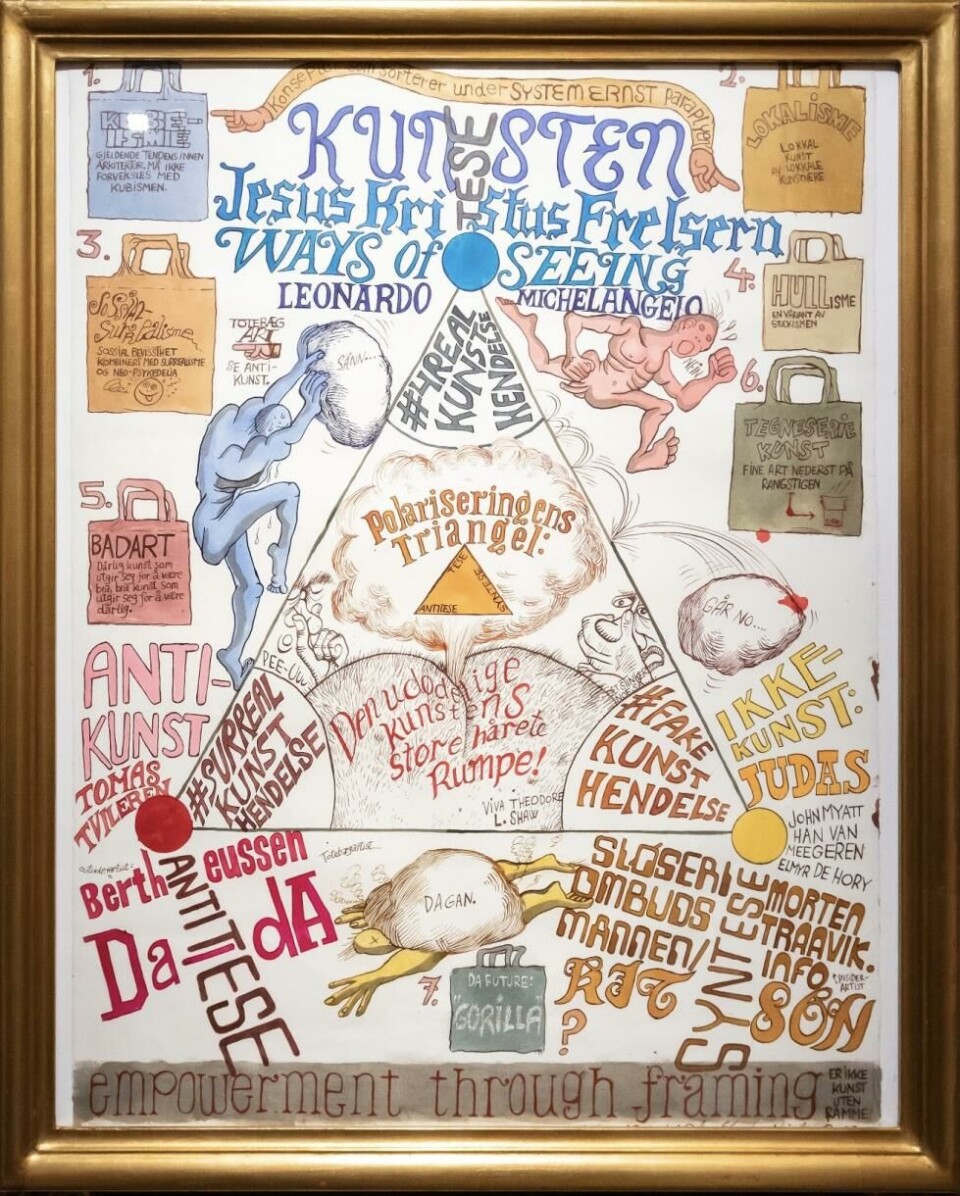 Konsepter som sorterer under SYSTEM ERNST paraplyen
1.
KUBE-
ISME
GJELDENDE TENDENS INNEN
ARKITEKTUR, MÅ IKKE
FORVEKSLES MED
KUBISMEN.
2.
LOKALISME
LOKKAL
KUNST
AV LOKKALE
KUNSTNERE
KUNSTEN
TESE
Jesus Kristus Frelsern
WAYS of SEEING
LEONARDO
MICHELANGELO
3.
SoSSial-
SuRRealisme
SOSSIAL BEVISSTHET
KOMBINERT MED SURREALISME
OG NEO-PSYKEDELIA
4.
HULLISME
EN VARIANT AV
STUKISMEN
TOTEBÆG
ART
SE ANTI-
KUNST.
SÅNN...
#HREAL
KUNST
HENDELSE
6.
TEGNESERIE
KUNST
FINE ART NEDERST PÅ
RANGSTIGEN
5.
BADART
Dårlig kunst som
utgir seg for å være
bra, bra kunst som
utgir seg for å være
dårlig.
Polariseringens
Triangel:
TESE
ANTITESE
GÅR NO....
PEE-UW
Den udødelige
kunstens
store hårete
Rumpe!
VIVA THEODORE
L. SHAW
ANTI-
KUNST
TOMAS
TVILEREN
#SURREAL
KUNST
HENDELSE
#FAKE
KUNST
HENDELSE
IKKE-
KUNST:
JUDAS
JOHN MYATT
HAN VAN
MEEGEREN
ELMYR DE HORY
Bertheussen
DadA
ANTITESE
DAGAN.
7.
DA FUTURE:
"GORILLA"
SLØSERI
OMBUDS
MANNEN/
KIT
?
SYNTESE
MORTEN
TRAAVIK.
INFO
& SÖN
empowerment through framing
ER IKKE
KUNST
UTEN
RAMME!